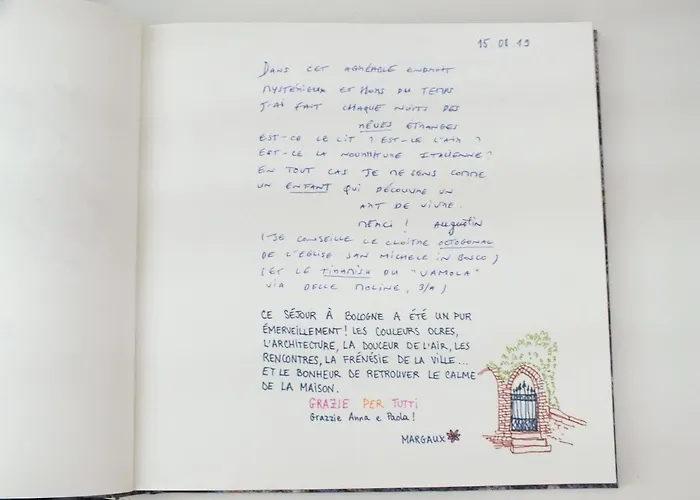 15.08.19
DANS CET AGRÉABLE ENDROIT
MYSTÉRIEUX ET HORS DU TEMPS
J'AI FAIT CHAQUE NUITS DES
RÊVES ÉTRANGES
EST-CE LE LIT ? EST-CE L'AIR ?
EST-CE LA NOURRITURE ITALIENNE ?
EN TOUT CAS JE ME SENS COMME
UN ENFANT QUI DÉCOUVRE UN
ART DE VIVRE.
MERCI ! Augustin
(JE CONSEILLE LE CLOÎTRE OCTOGONAL
DE L'ÉGLISE SAN MICHELE IN BOSCO)
(ET LE TIRAMISU DU "VAMOLA"
VIA DELLE MOLINE, 3/A)
CE SÉJOUR À BOLOGNE A ÉTÉ UN PUR
ÉMERVEILLEMENT ! LES COULEURS OCRES,
L'ARCHITECTURE, LA DOUCEUR DE L'AIR, LES
RENCONTRES, LA FRÉNÉSIE DE LA VILLE...
ET LE BONHEUR DE RETROUVER LE CALME
DE LA MAISON.
GRAZIE PER TUTTI
Grazzie Anna e Paola !
MARGAUX